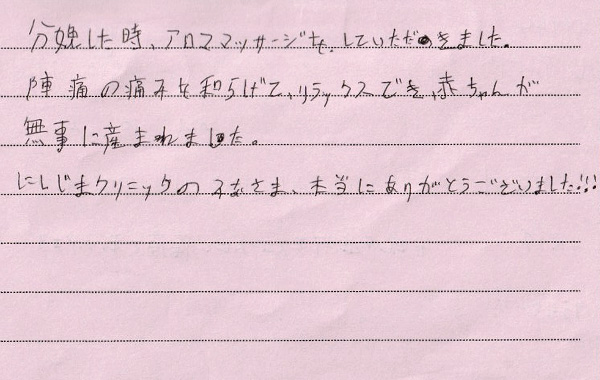 分娩した時、アロママッサージを、していただきました。
陣痛の痛みを和らげて、リラックスでき、赤ちゃんが
無事に産まれました。
にしじまクリニックのみなさま、本当にありがとうございました!!!